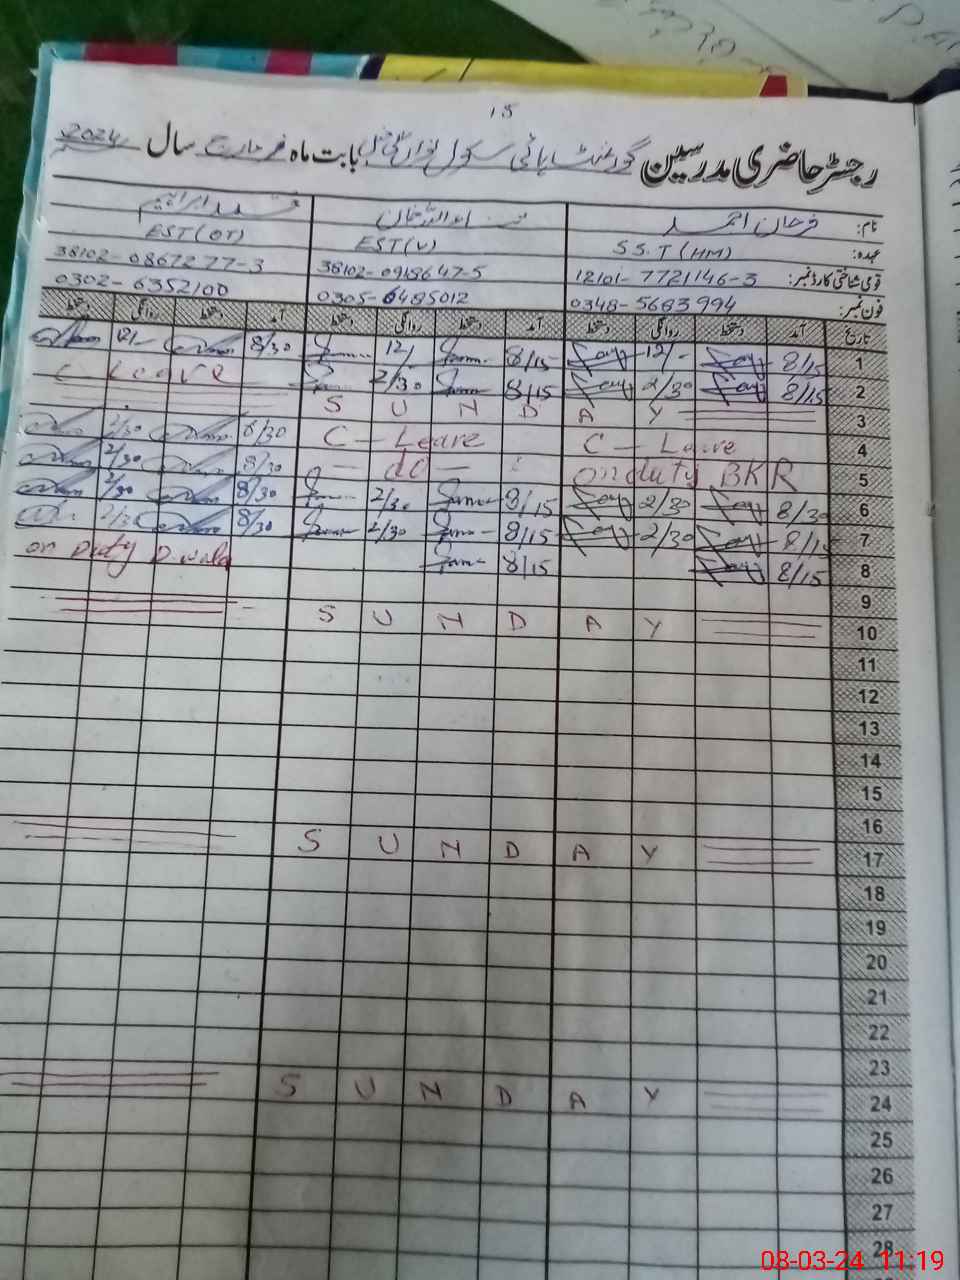 15
رجسٹر حاضری مدرسین گورنمنٹ ہائی سکول بابت ماہ مارچ سال 2024
نام: فرحان احمد
عہدہ: S.S.T (HM) EST(V) EST(OT)
قومی شناختی کارڈ نمبر: 12101-7721146-3 38102-0918647-5 38102-0867277-3
فون نمبر: 0348-5683994 0305-6485012 0302-6352100
تاریخ آمد دستخط روانگی دستخط آمد دستخط روانگی دستخط آمد دستخط روانگی دستخط
1 8/15 12/- 8/15 12/ 8/30 12/-
2 8/15 2/30 8/15 2/30 C Leave
3 S U N D A Y
4 C - Leave C - Leave 8/30 2/30
5 on duty BKR - do - 8/30 2/30
6 8/30 2/30 8/15 2/30 8/30 2/30
7 8/15 2/30 8/15 2/30 8/30 2/30
8 8/15 8/15 on Duty
9
10 S U N D A Y
11
12
13
14
15
16
17 S U N D A Y
18
19
20
21
22
23
24 S U N D A Y
25
26
27
28
08-03-24 11:19